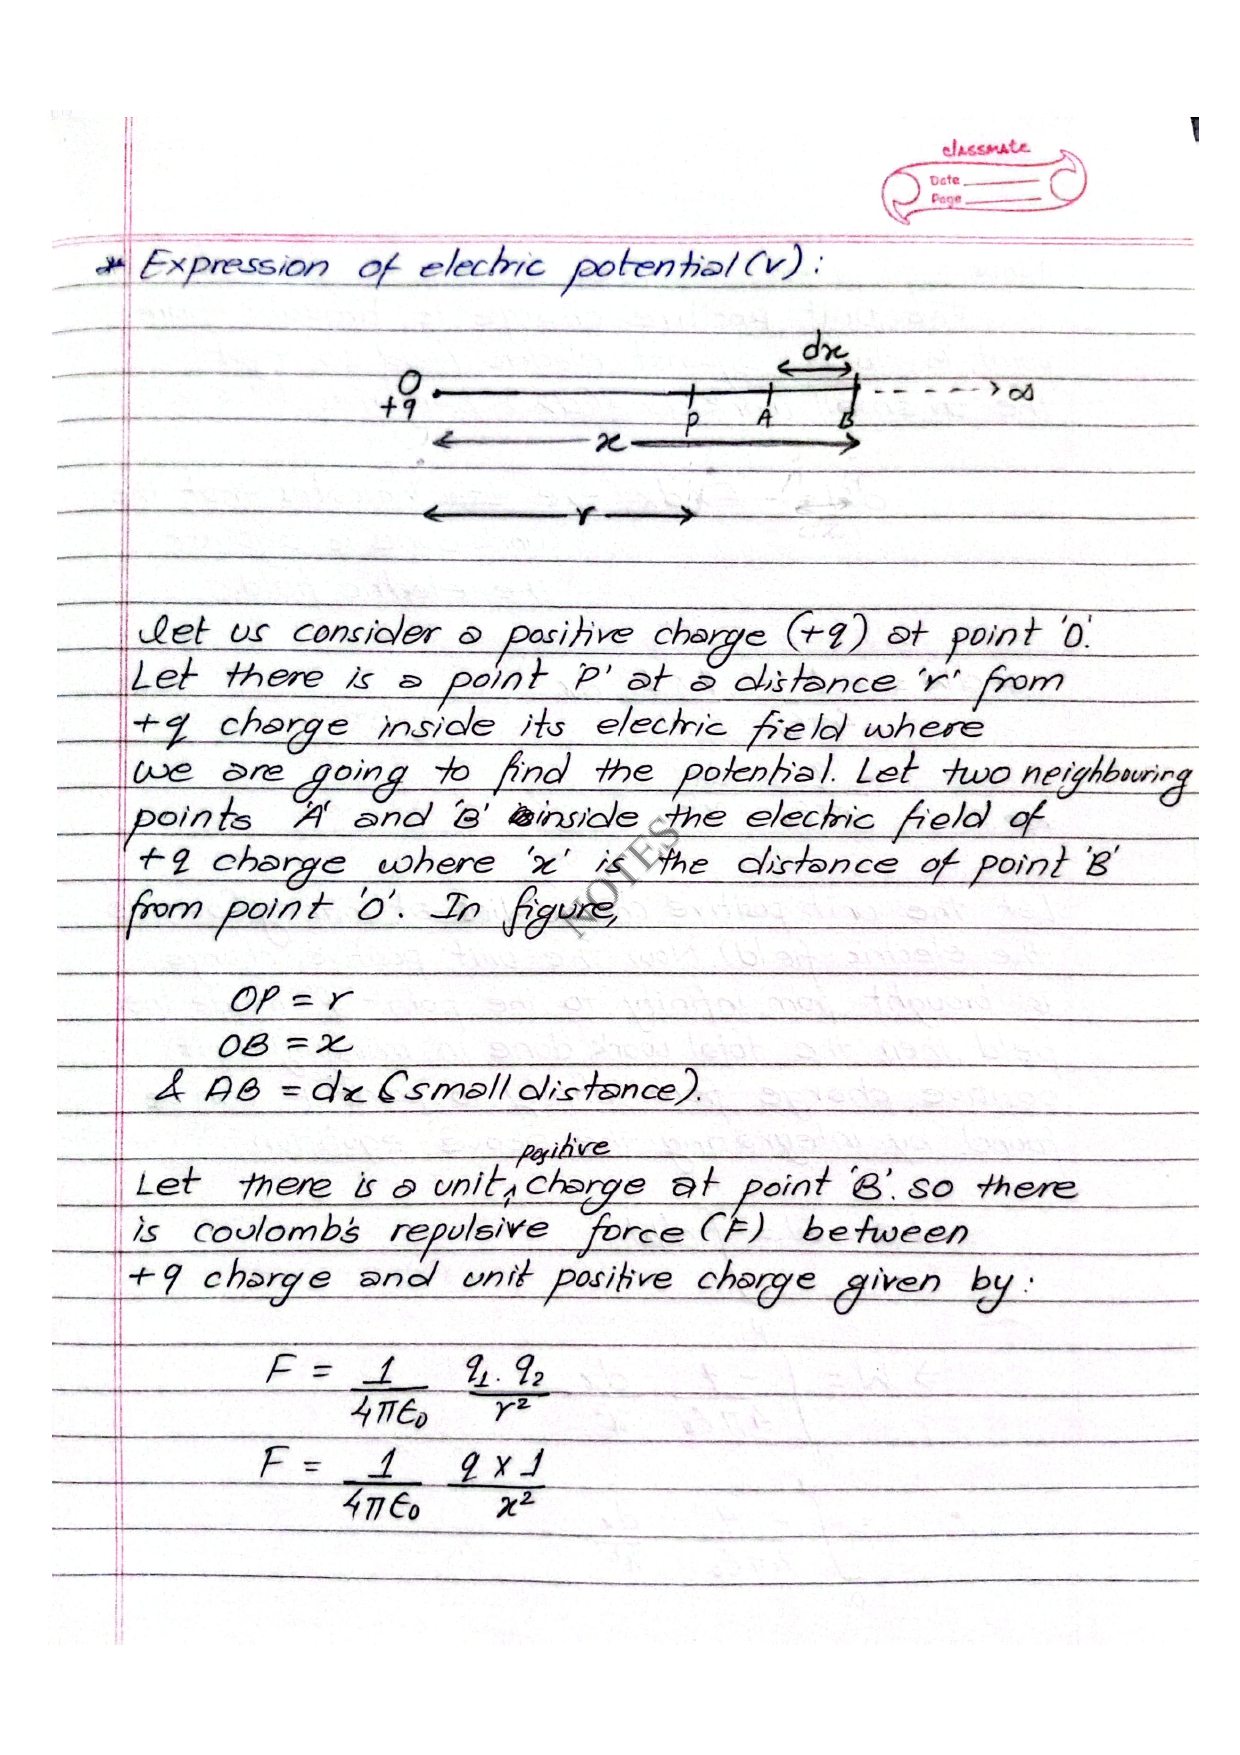 classmate
Date
Page
* Expression of electric potential (v) :
dx
O
+q
P
A
B
∞
x
r
Let us consider a positive charge (+q) at point 'O'.
Let there is a point 'P' at a distance 'r' from
+q charge inside its electric field where
we are going to find the potential. Let two neighbouring
points 'A' and 'B' inside the electric field of
+q charge where 'x' is the distance of point 'B'
from point 'O'. In figure,
NOTES
OP = r
OB = x
& AB = dx (small distance).
positive
Let there is a unit charge at point 'B'. so there
is coulomb's repulsive force (F) between
+q charge and unit positive charge given by :
F = 1/4πϵ0 q1. q2/r²
F = 1/4πϵ0 q x 1/x²